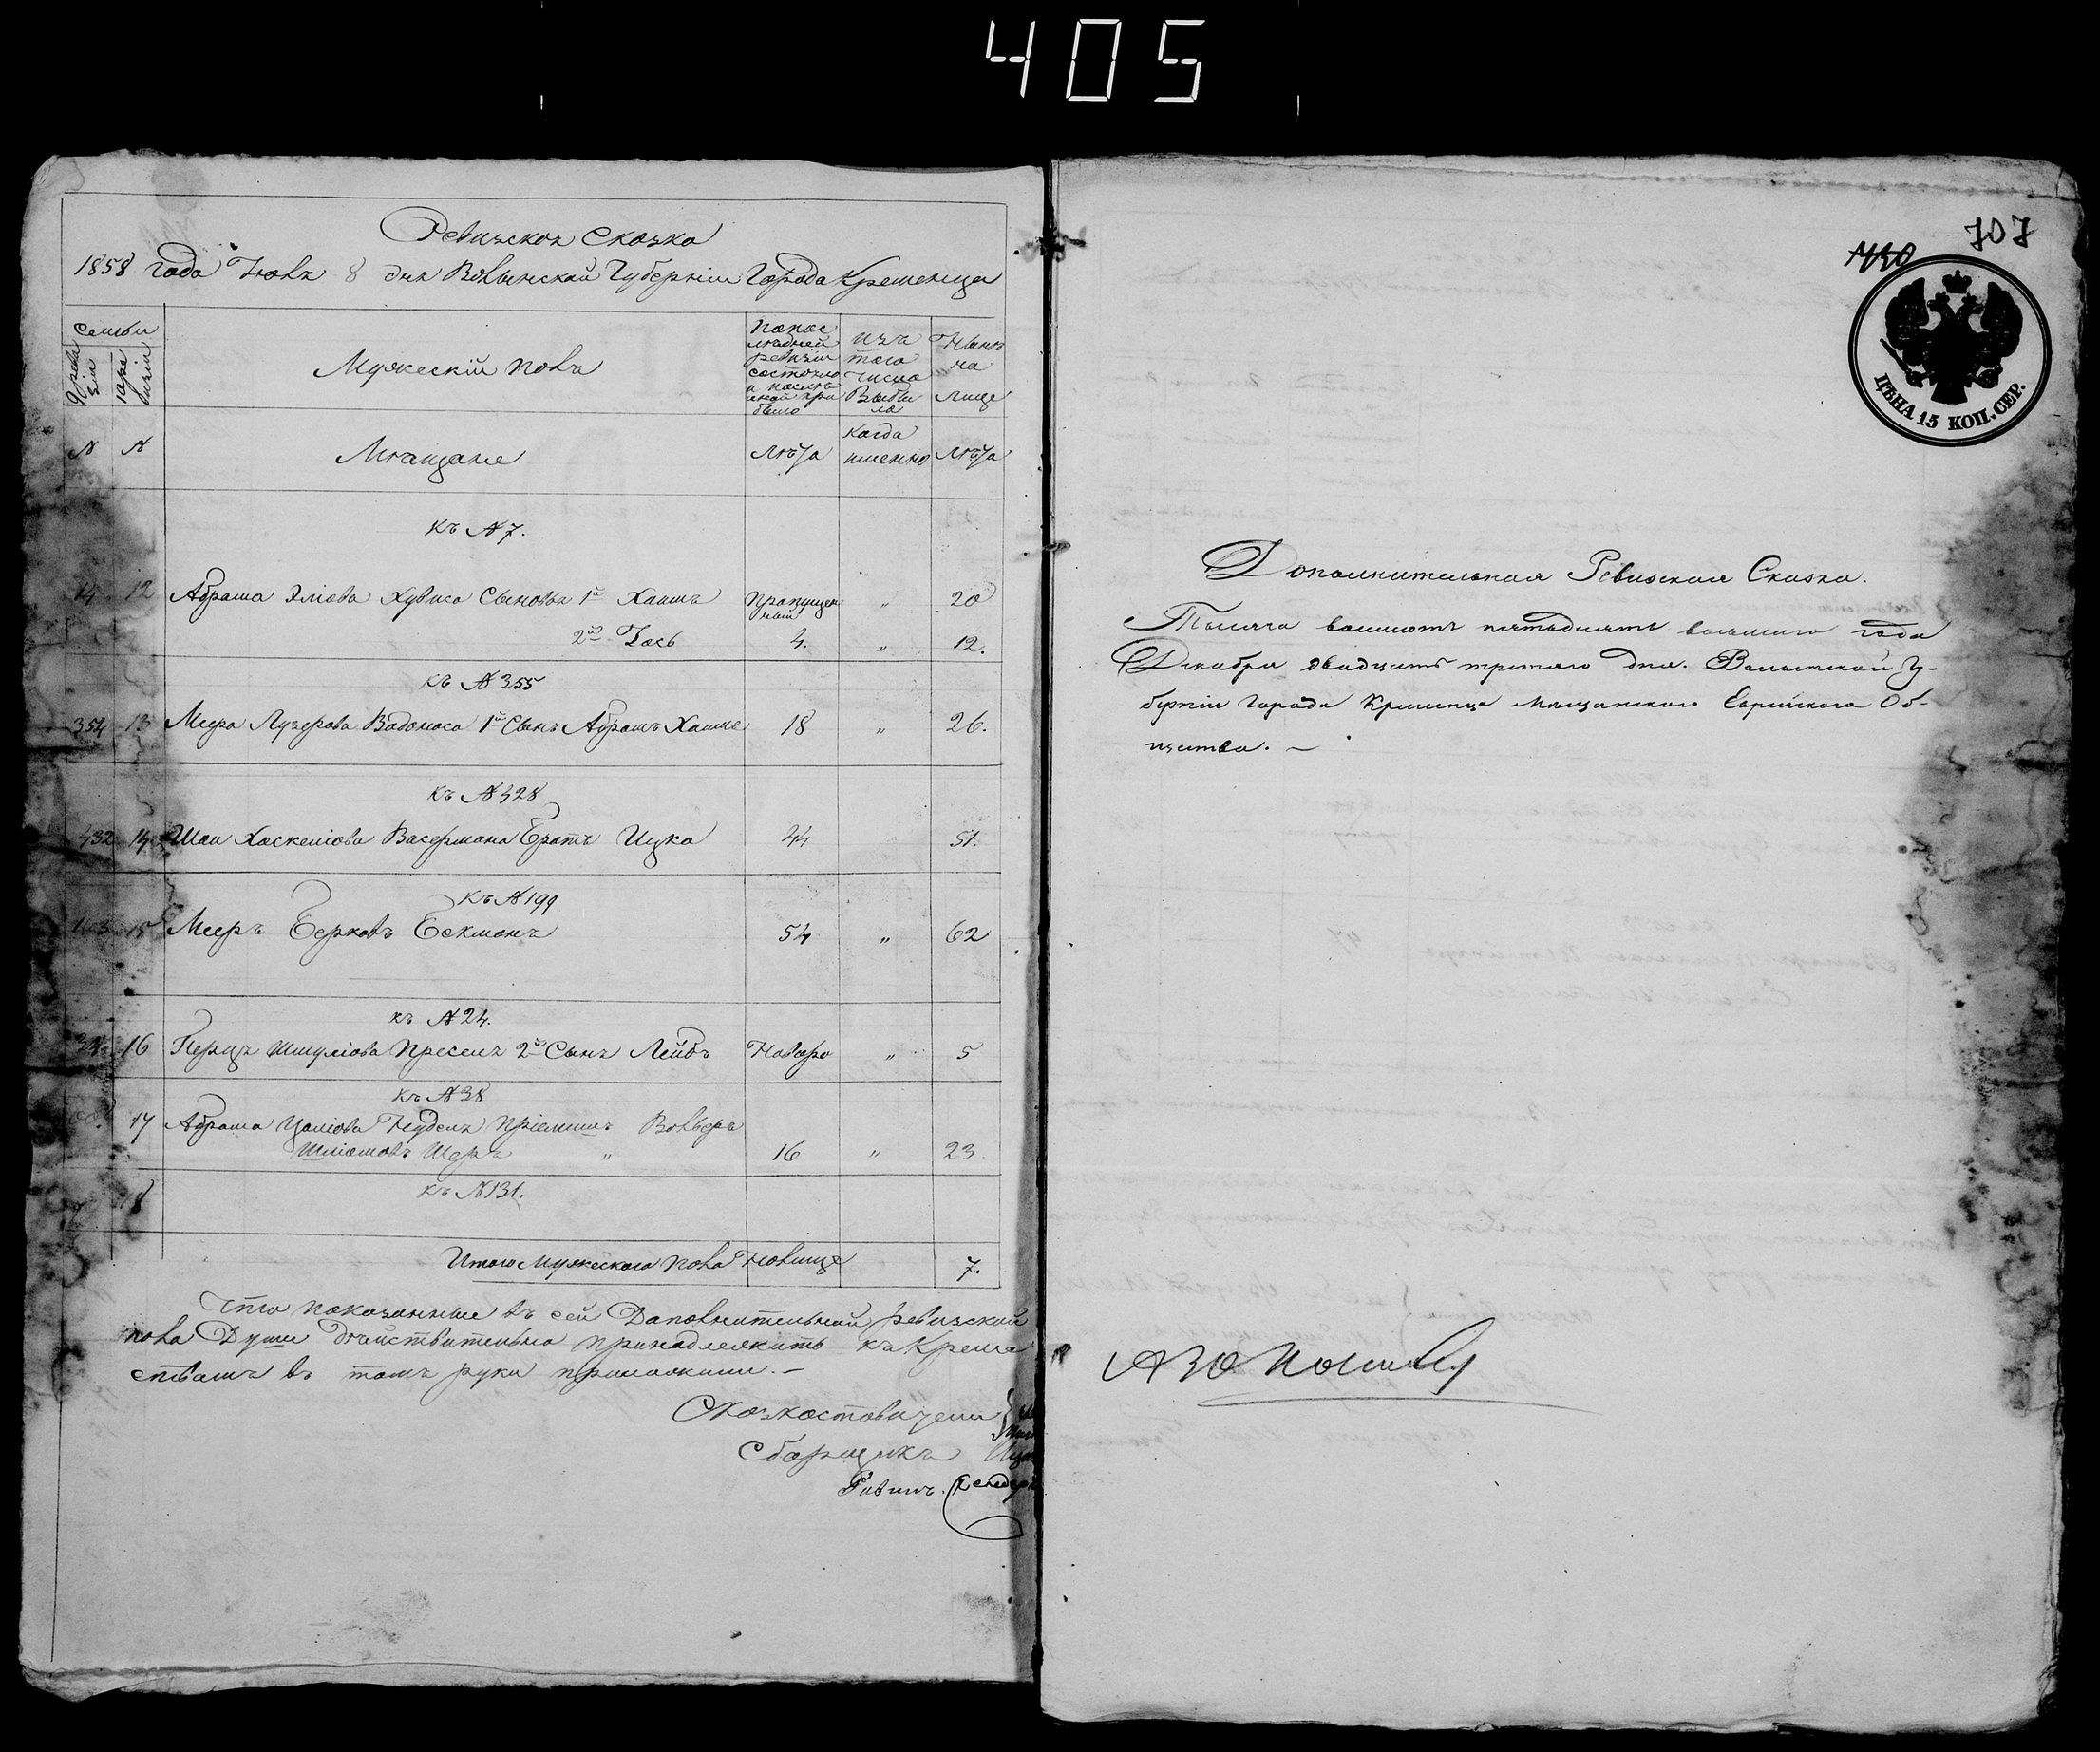 405
Ревизская Сказка
1858 года Июля 8 дня Волынской Губерніи Города Кременца
Семьи
Мужескій полъ
По пос
лѣдней
ревизіи
состояло
и послѣ
оной при
было
изъ
того
числа
Выбы
ло
Нынѣ
на
лице
№ №
Мѣщане
Лѣта
когда
именно
Лѣта
къ № 7.
14 12 Абрама Эліова Хувиса Сыновья 1й Хаимъ Пропущен
ный " 20
2й Іось 4. " 12.
къ № 355
354 13 Меера Лузерова Вадоноса 1й Сынъ Абрамъ Хаимъ 18 " 26.
къ № 428
432 14 Шаи Хаскеліова Васермана Братъ Ицко 44 51.
къ № 199
15 Мееръ Берковъ Бекманъ 54 " 62
къ № 24.
16 Перецъ Шмуліова Пресель 2й Сынъ Лейбъ Новоро " 5
къ № 38
17 Абрама Цаліова Нудель Пріемышъ Вольверъ
Шліомовъ Шеръ " 16 " 23
18 къ № 131.
Итого Мужескаго пола На лице 7.
Что показанные въ сей Даполнительной ревизской
пола Души дѣйствительно принадлежитъ къ Креме
ствамъ въ томъ руки приложили. —
Сказкоставители
Сборщикъ
Равинъ.
707
ЦѢНА 15 КОП. СЕР.
Дополнительная Ревизская Сказка.
Тысяча восимотъ пятьдисятъ восьмаго года
Декабря двадцать третяго дня. Волынской Гу-
берніи Города Кременца Мещанского Еврейского Об-
щества. —